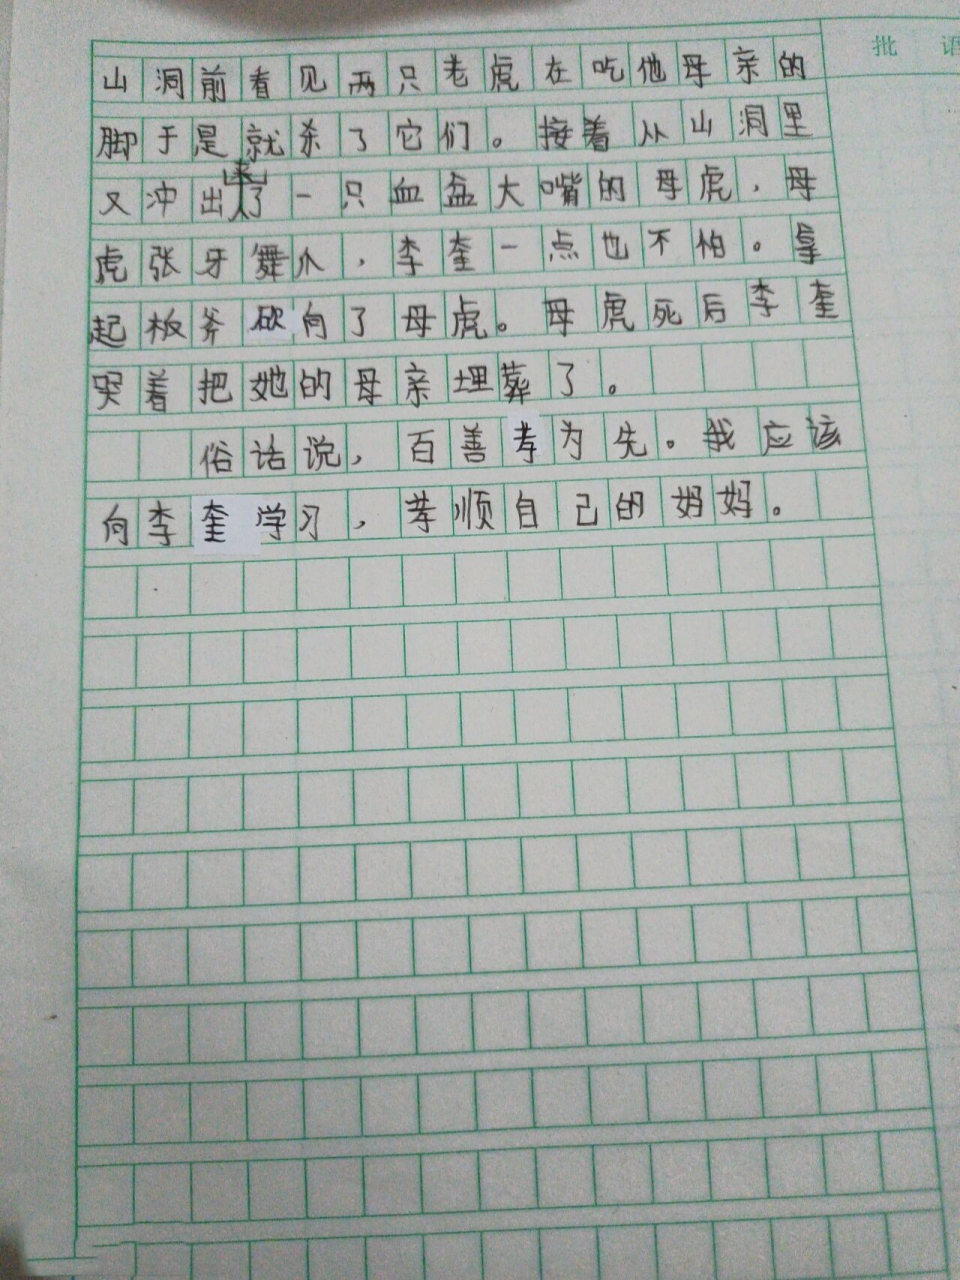 批 语
山洞前看见两只老虎在吃他母亲的
脚于是就杀了它们。接着从山洞里
又冲出来了一只血盆大嘴的母虎，母
虎张牙舞爪，李奎一点也不怕。拿
起板斧砍向了母虎。母虎死后李奎
哭着把她的母亲埋葬了。
俗话说，百善孝为先。我应该
向李奎学习，孝顺自己的妈妈。